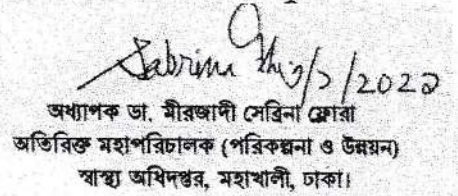 Sabrina
অধ্যাপক ডা. মীরজাদী সেব্রিনা ফ্লোরা
অতিরিক্ত মহাপরিচালক (পরিকল্পনা ও উন্নয়ন)
স্বাস্থ্য অধিদপ্তর, মহাখালী, ঢাকা।